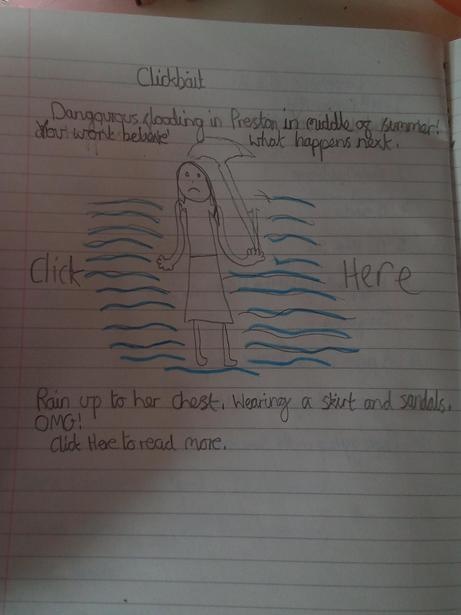 Clickbait
Dangourous flooding in Preston in middle of summer!
You wont believe what happens next.
Click Here
Rain up to her chest. Wearing a skirt and sandals.
OMG!
Click Here to read more.